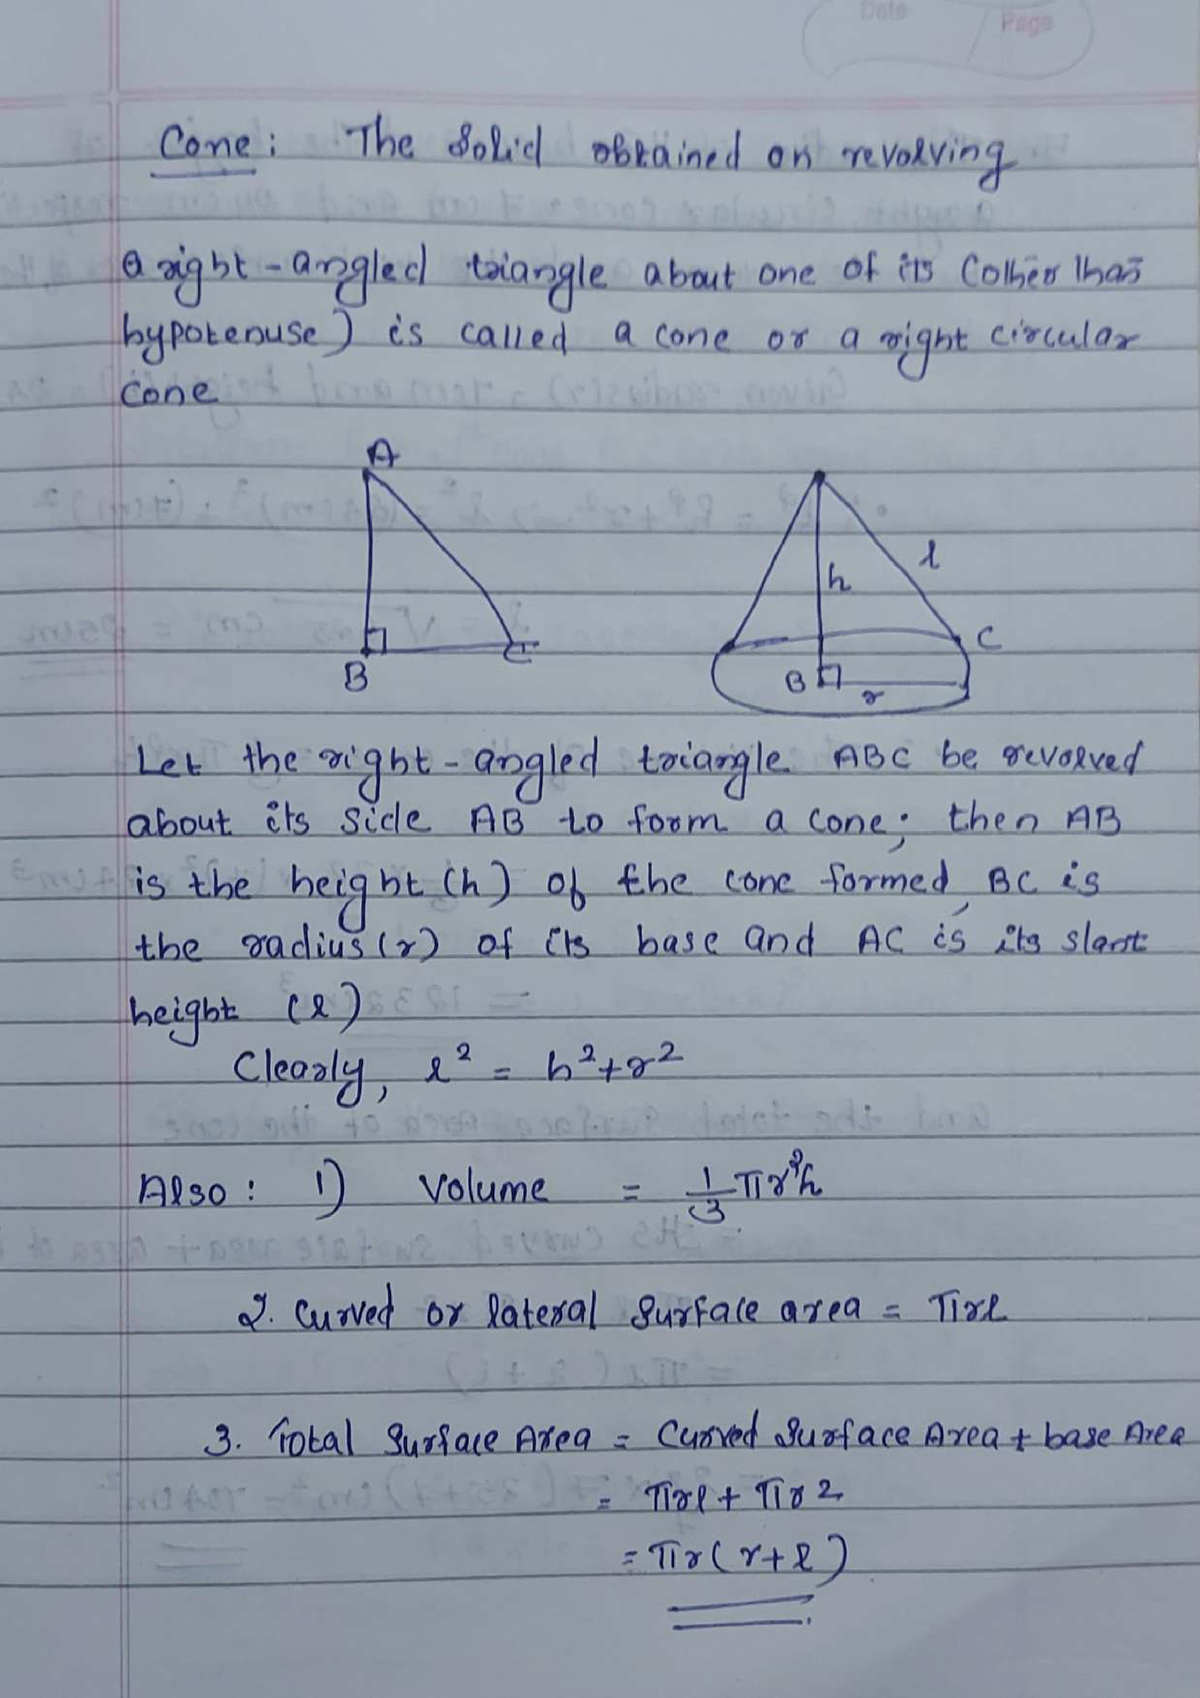 Date
Page
Cone: The Solid obtained on revolving
a right-angled triangle about one of its (other than
hypotenuse) is called a cone or a right circular
cone
A
B
C
h
l
B
C
r
Let the right-angled triangle ABC be revolved
about its side AB to form a cone; then AB
is the height (h) of the cone formed, BC is
the radius (r) of its base and AC is its slant
height (l)
Clearly, l² = h²+r²
Also: 1) Volume = 1/3 πr²h
2. Curved or lateral Surface area = πrl
3. Total Surface Area = Curved Surface Area + base Area
= πrl + πr2
= πr(r+l)